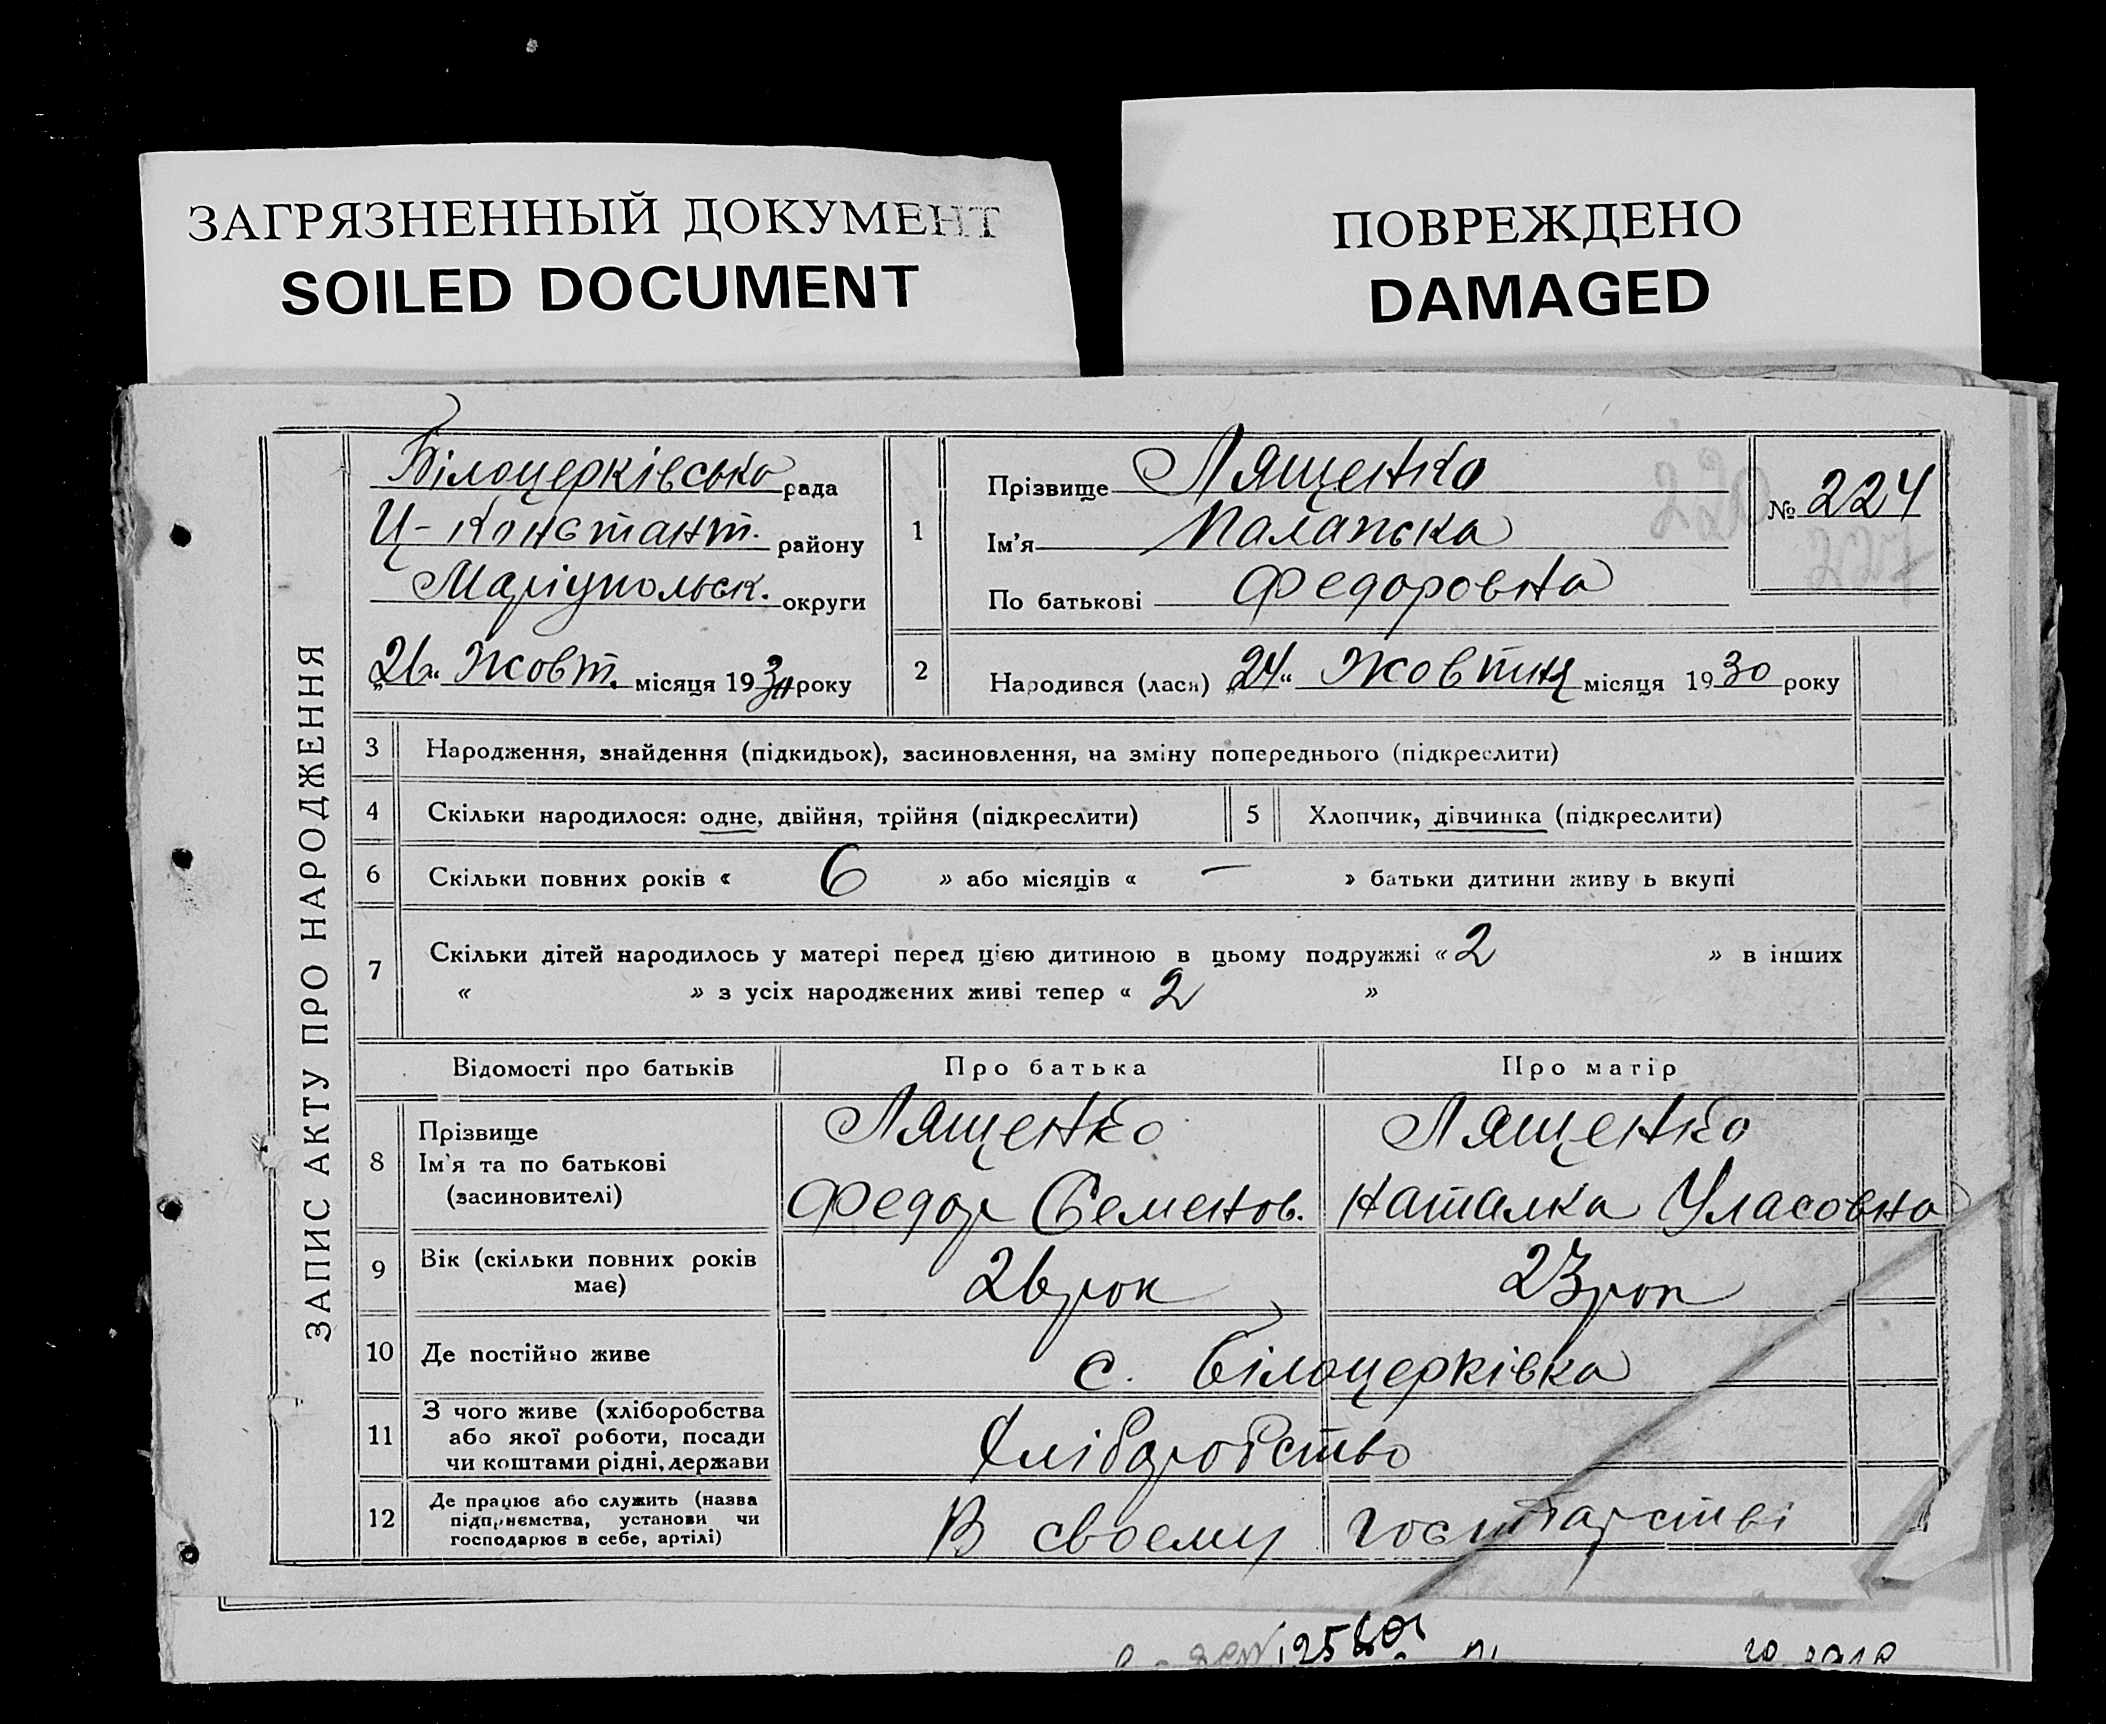 ЗАГРЯЗНЕННЫЙ ДОКУМЕНТ
SOILED DOCUMENT
ПОВРЕЖДЕНО
DAMAGED
ЗАПИС АКТУ ПРО НАРОДЖЕННЯ
Білоцерківська рада
Ц-Констант. району
Маріупольск. округи
„26“ Жовт. місяця 1930 року
1
Прізвище Лященко
Ім'я Палапська
По батькові Федоровна
№ 224
2
Народився (лася) „24“ Жовтня місяця 1930 року
3 Народження, знайдення (підкидьок), засиновлення, на зміну попереднього (підкреслити)
4 Скільки народилося: одне, двійня, трійня (підкреслити)
5 Хлопчик, дівчинка (підкреслити)
6 Скільки повних років « 6 » або місяців « – » батьки дитини живу ь вкупі
7 Скільки дітей народилось у матері перед цією дитиною в цьому подружжі « 2 » в інших
« » з усіх народжених живі тепер « 2 »
Відомості про батьків Про батька Про матір
8
Прізвище
Ім'я та по батькові
(засиновителі)
Лященко
Федор Семенов.
Лященко
Наталка Уласовна
9
Вік (скільки повних років
має)
26 рок
23 рок
10 Де постійно живе
с. Білоцерківка
11
З чого живе (хліборобства
або якої роботи, посади
чи коштами рідні, держави
Хліборобство
12
Де працює або служить (назва
підприємства, установи чи
господарює в себе, артілі)
В своему господарстві